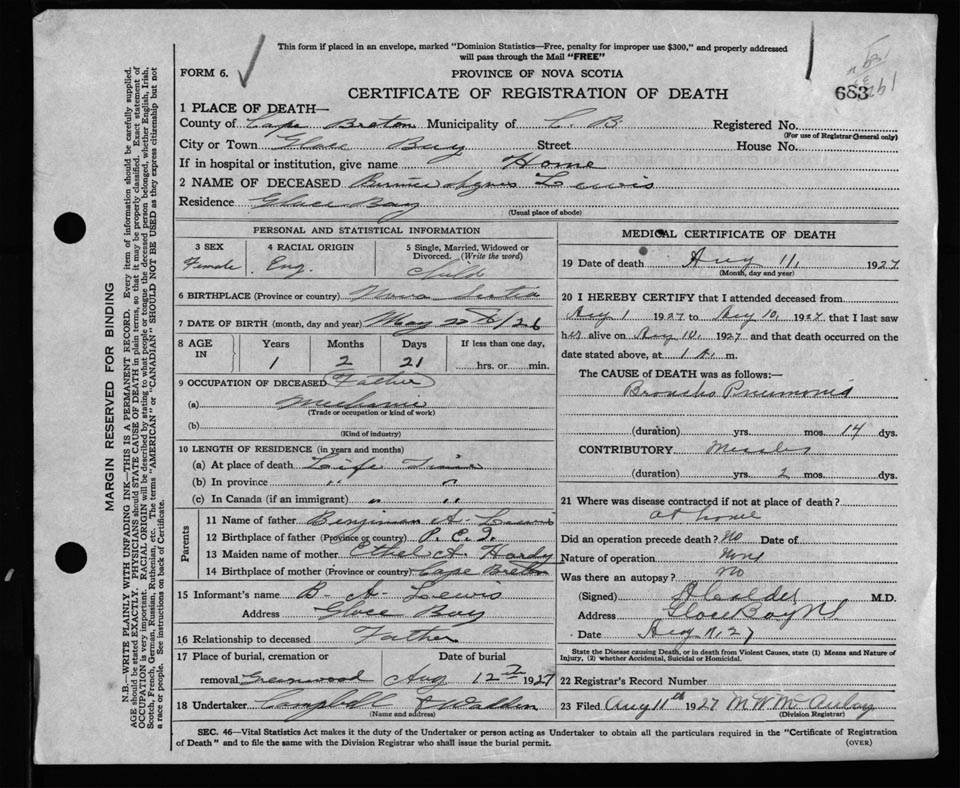 This form if placed in an envelope, marked "Dominion Statistics—Free, penalty for improper use $300," and properly addressed
will pass through the Mail "FREE"
FORM 6.
PROVINCE OF NOVA SCOTIA
CERTIFICATE OF REGISTRATION OF DEATH
683
1 PLACE OF DEATH—
County of Cape Breton Municipality of C B Registered No.
(For use of Registrar General only)
City or Town Glace Bay Street House No.
If in hospital or institution, give name Home
2 NAME OF DECEASED Agnes Lewis
Residence Glace Bay
(Usual place of abode)
PERSONAL AND STATISTICAL INFORMATION
3 SEX 4 RACIAL ORIGIN 5 Single, Married, Widowed or
Divorced. (Write the word)
Female Eng. Child
6 BIRTHPLACE (Province or country) Nova Scotia
7 DATE OF BIRTH (month, day and year) May 20th/26
8 AGE IN Years Months Days If less than one day,
1 2 21 hrs. or min.
9 OCCUPATION OF DECEASED Father
(a) Mechanic
(Trade or occupation or kind of work)
(b)
(Kind of industry)
10 LENGTH OF RESIDENCE (in years and months)
(a) At place of death Life Time
(b) In province " "
(c) In Canada (if an immigrant) " "
Parents
11 Name of father Benjiman A. Lewis
12 Birthplace of father (Province or country) P. E. I.
13 Maiden name of mother Ethel A. Hardy
14 Birthplace of mother (Province or country) Cape Breton
15 Informant's name B. A. Lewis
Address Glace Bay
16 Relationship to deceased Father
17 Place of burial, cremation or Date of burial
removal Greenwood Aug 12 1927
18 Undertaker Campbell & Walden
(Name and address)
MEDICAL CERTIFICATE OF DEATH
19 Date of death Aug 11, 1927
(Month, day and year)
20 I HEREBY CERTIFY that I attended deceased from
Aug 1 1927 to Aug 10, 1927 that I last saw
her alive on Aug 10, 1927 and that death occurred on the
date stated above, at 1 A. m.
The CAUSE of DEATH was as follows:—
Broncho Pneumonia
(duration) yrs. mos. 14 dys.
CONTRIBUTORY Measles
(duration) yrs. 2 mos. dys.
21 Where was disease contracted if not at place of death?
at home
Did an operation precede death? No Date of
Nature of operation None
Was there an autopsy? no
(Signed) A Calder M.D.
Address Glace Bay N.S.
Date Aug 11, 27
State the Disease causing Death, or in death from Violent Causes, state (1) Means and Nature of
Injury, (2) whether Accidental, Suicidal or Homicidal.
22 Registrar's Record Number
23 Filed Aug 11th 1927 M W McAulay
(Division Registrar)
SEC. 46—Vital Statistics Act makes it the duty of the Undertaker or person acting as Undertaker to obtain all the particulars required in the "Certificate of Registration
of Death" and to file the same with the Division Registrar who shall issue the burial permit. (OVER)
MARGIN RESERVED FOR BINDING
N.B.—WRITE PLAINLY WITH UNFADING INK—THIS IS A PERMANENT RECORD. Every item of information should be carefully supplied.
AGE should be stated EXACTLY. PHYSICIANS should STATE CAUSE OF DEATH in plain terms, so that it may be properly classified. Exact statement of
OCCUPATION is very important. RACIAL ORIGIN will be described by stating to what people or tongue the deceased person belonged, whether English, Irish,
Scotch, French, German, Russian, Ruthenian, etc. The terms "AMERICAN" or "CANADIAN" SHOULD NOT BE USED as they express citizenship but not
a race or people. See instructions on back of Certificate.